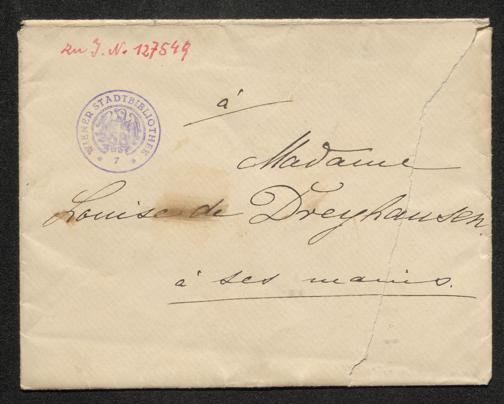 zu J. N. 127549
WIENER STADTBIBLIOTHEK
7
à
Madame
Louise de Dreyhausen.
à ses mains.